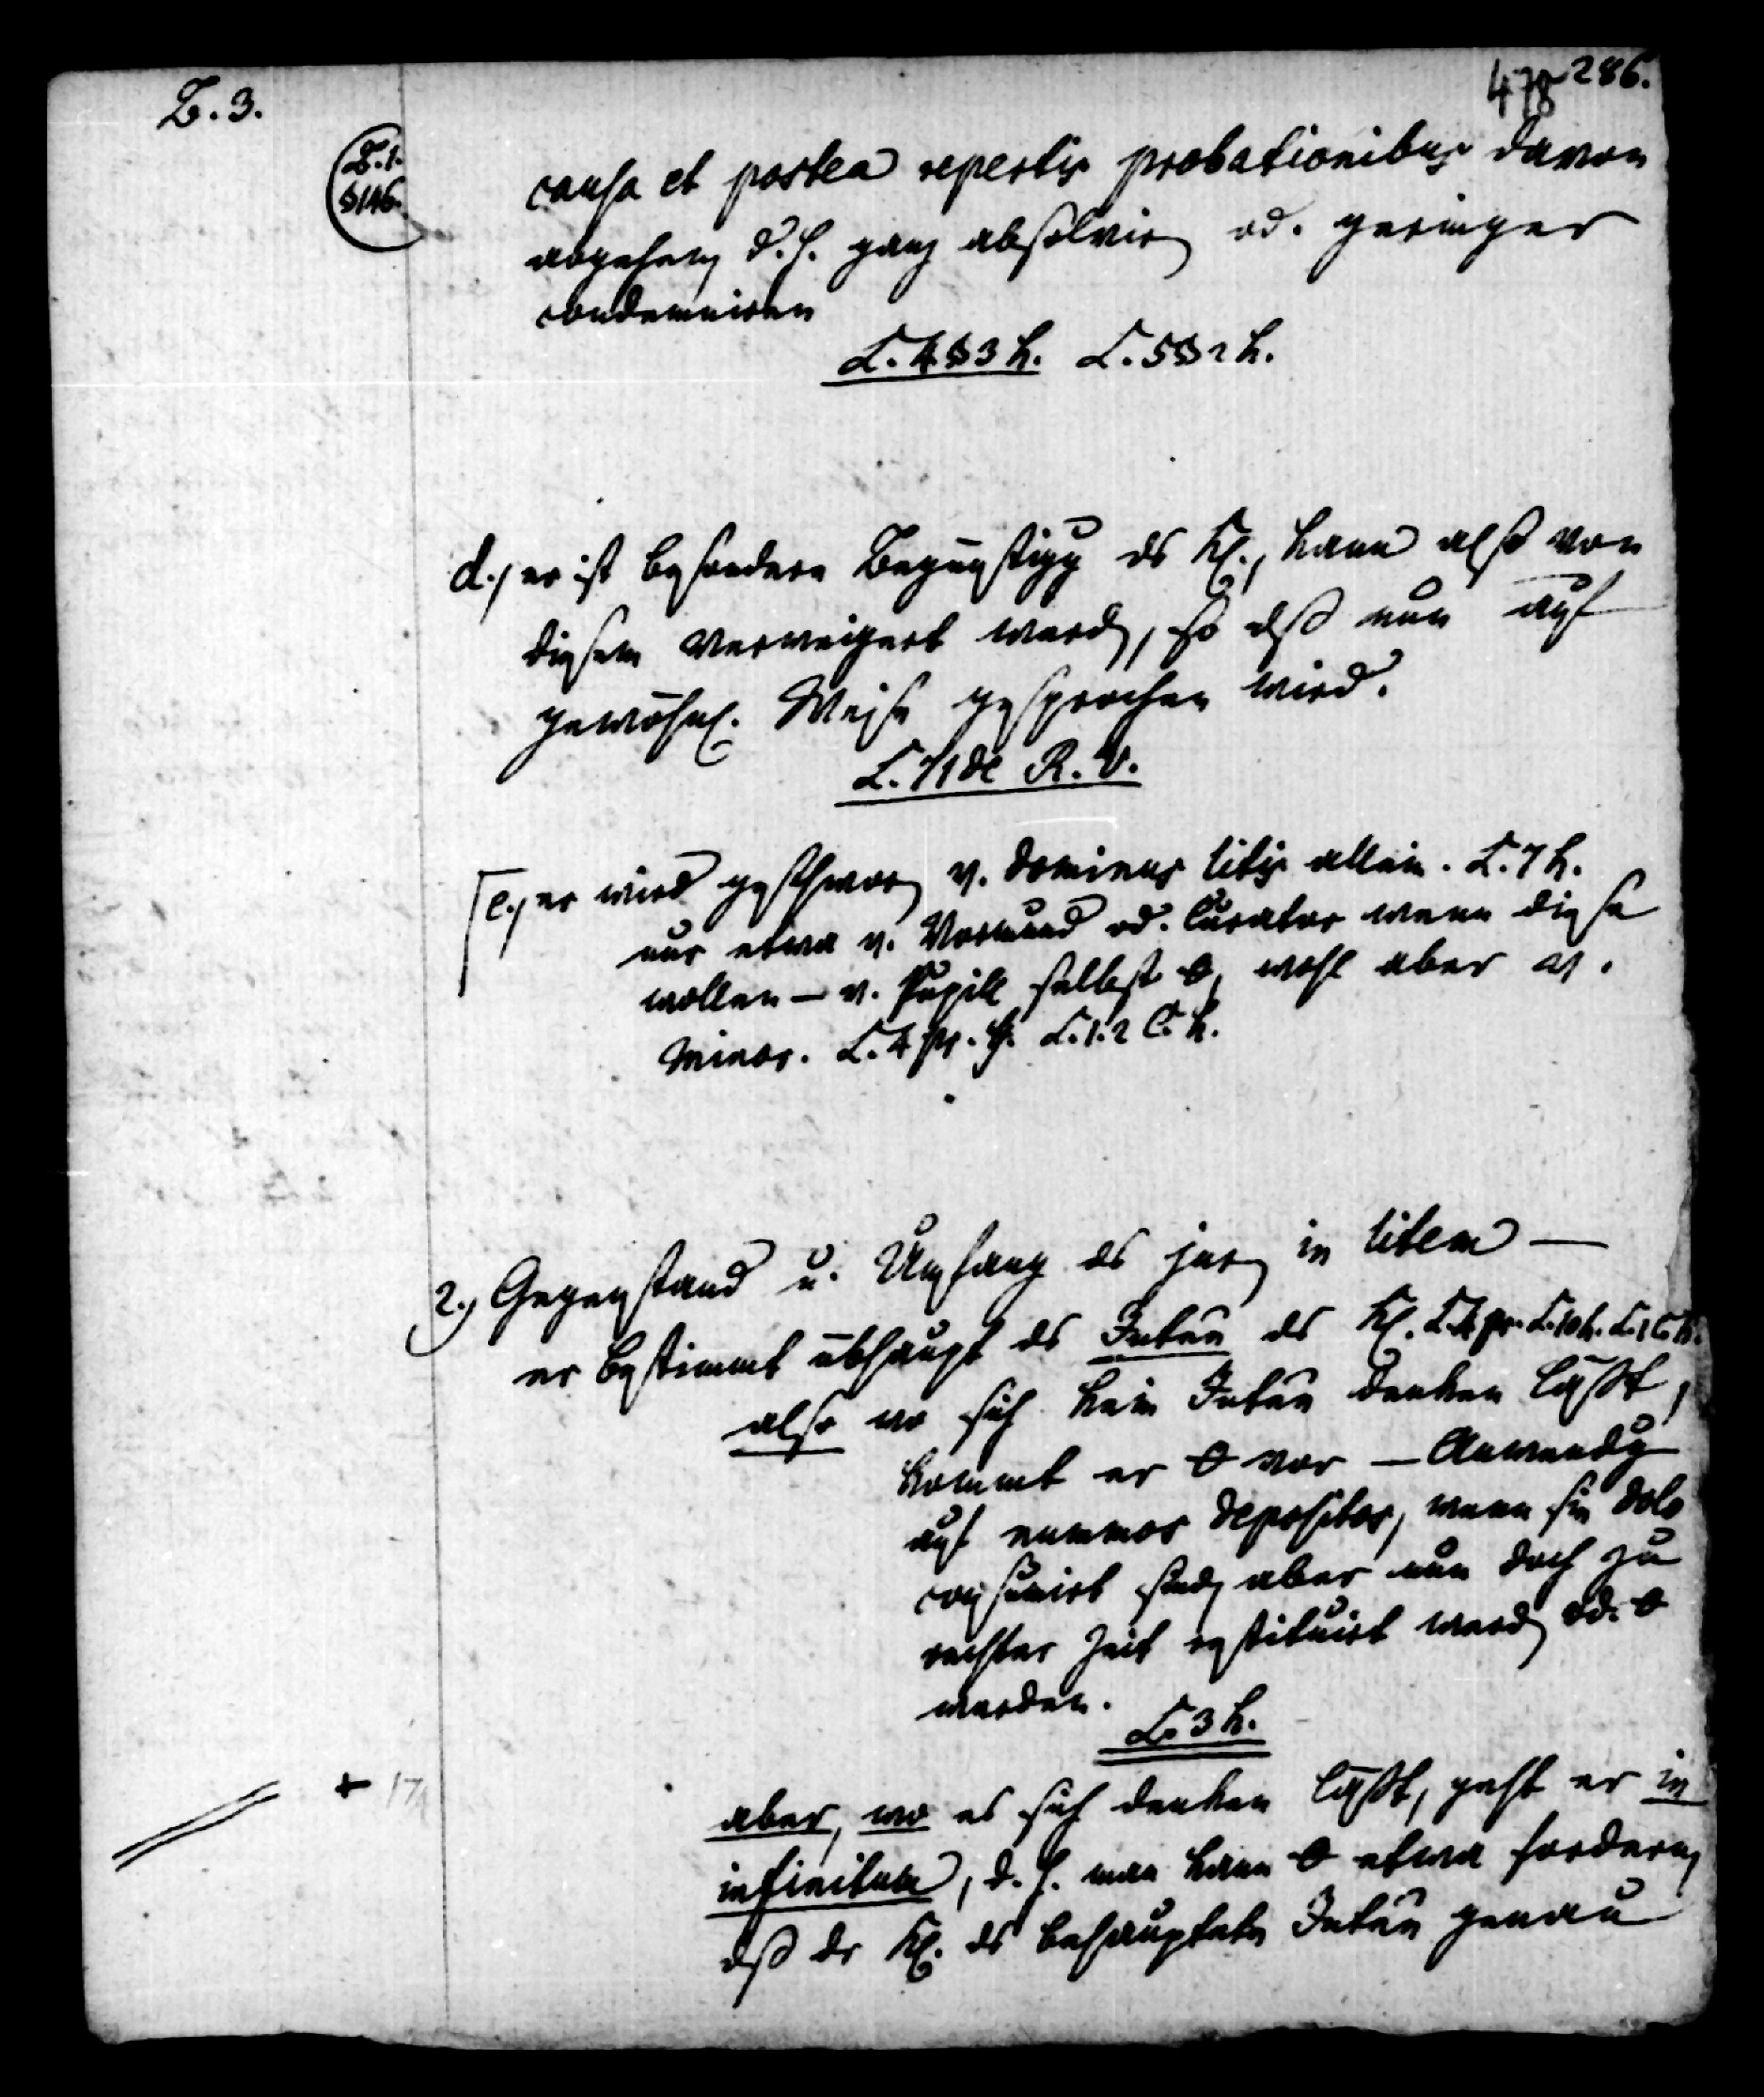 B. 3.
478 286.
B. 1.
§ 146.
causa et postea repertis probationibus davon
abgehen, d. h. ganz absolvir. od. geringer
condemniren
L. 4 § 3 h. L. 5 § 2 h.
d., er ist besondere Begünstigg ds Kl., kann also von
diesem verweigert werd., so dß nun auf
gewöhnl. Weise gesprochen wird.
L. 71 de R. V.
e., er wird geschwor. v. dominus litis allein. L. 7 h.
nur etwa v. Vormund od. Curator wenn diese
wollen — v. Pupill selbst θ, wohl aber v.
Minor. L. 4 pr. h. L. 1. 2 C. h.
2., Gegenstand u. Umfang ds jur. in litem —
er bestimmt übhaupt ds Intere ds Kl. L. 4 pr. L. 10 h. L. 1 C. h.
also wo sich kein Intere denken läßt,
kommt er θ vor — Anwendg
auf nummos depositos, wenn sie dolo
consumirt sind, aber nun doch zu
rechter Zeit restituirt werd. od. θ
werden.
L. 3 h.
+ 17
aber, wo es sich denken läßt, geht er in
infinitum, d. h. man kann θ etwa fordern,
dß dr Kl. ds behauptete Intere genau